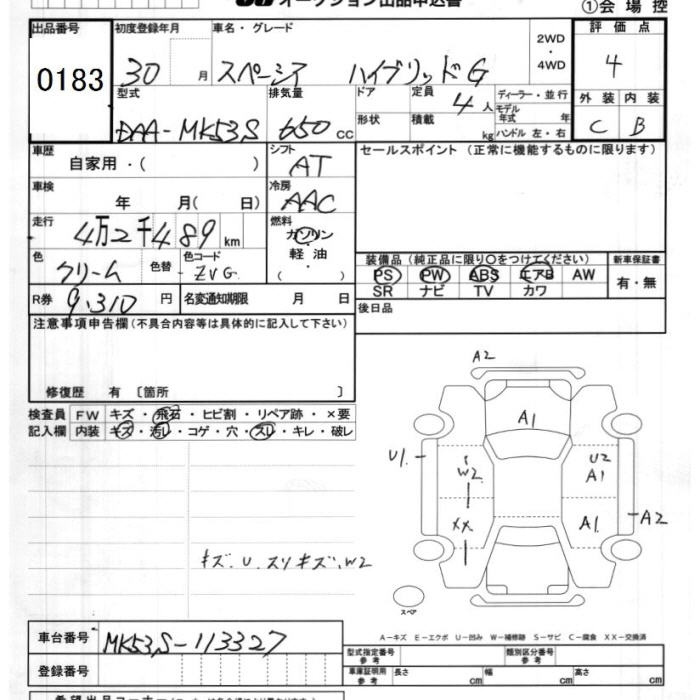 オークション出品申込書
①会場控
出品番号
0183
初度登録年月
30 月
車名・グレード
スペーシア ハイブリッドG
2WD
・
4WD
評価点
4
型式
DAA-MK53S
排気量
650 CC
ドア
形状
定員
4人
積載
kg
ディーラー・並行
モデル
年式 年
ハンドル 左・右
外装 内装
C B
車歴
自家用・( )
シフト
AT
セールスポイント (正常に機能するものに限ります)
車検
年 月( 日)
冷房
AAC
走行
4万2千489 km
燃料
ガソリン
・
軽油
( ・ )
色
クリーム
色替
色コード
ZVG
装備品 (純正品に限り○をつけてください)
PS PW ABS エアB AW
SR ナビ TV カワ
新車保証書
有・無
R券
9,310 円
名変通知期限 月 日
後日品
注意事項申告欄 (不具合内容等は具体的に記入して下さい)
修復歴 有 〔箇所 〕
検査員
記入欄
FW キズ・飛石・ヒビ割・リペア跡・×要
内装 キズ・汚レ・コゲ・穴・スレ・キレ・破レ
A2
A1
U1
W2
U2
A1
XX
A1
A2
キズ、U、スリキズ、W2
スペア
A-キズ E-エクボ U-凹み W-補修跡 S-サビ C-腐食 XX-交換済
車台番号
MK53S-113327
登録番号
型式指定番号
参考
類別区分番号
参考
車庫証明用
参考
長さ cm
幅 cm
高さ cm